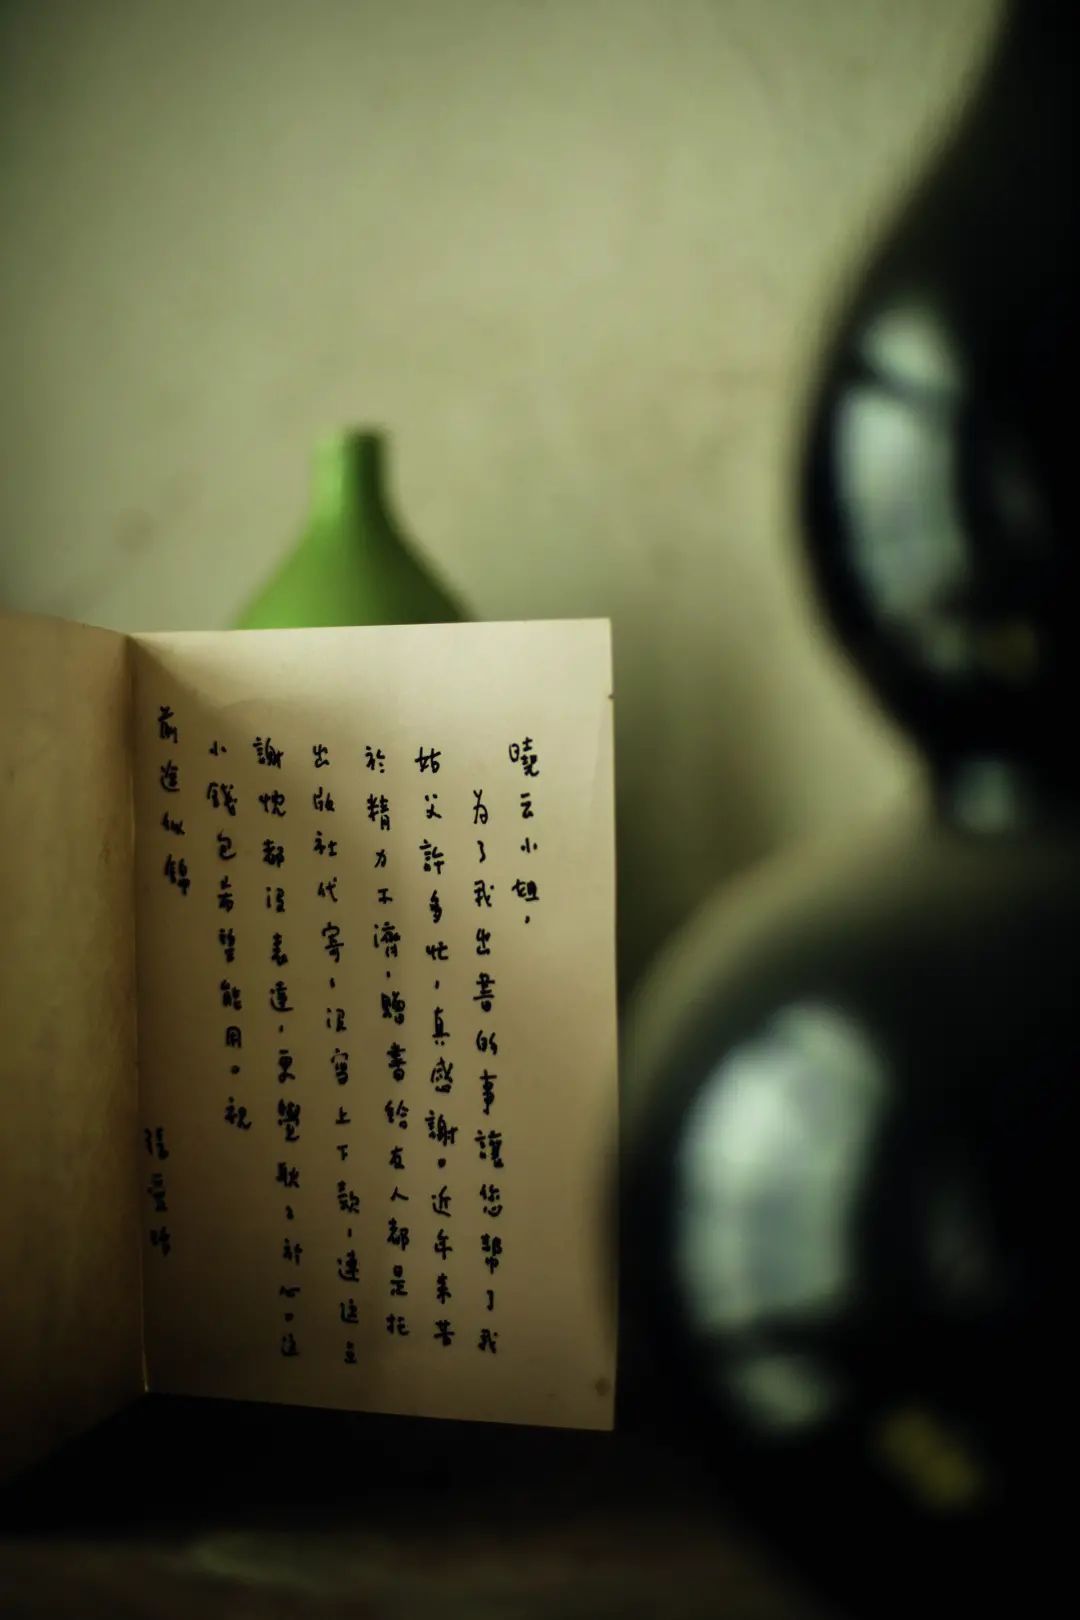 曉云小姐，
为了我出書的事讓您幫了我
姑父許多忙，真感謝。近年来苦
於精力不濟，贈書給友人都是托
出版社代寄，沒寫上下款，連這点
謝忱都沒表達，更覺耿耿於心。這
小錢包希望能用。祝
前途似錦
張愛玲